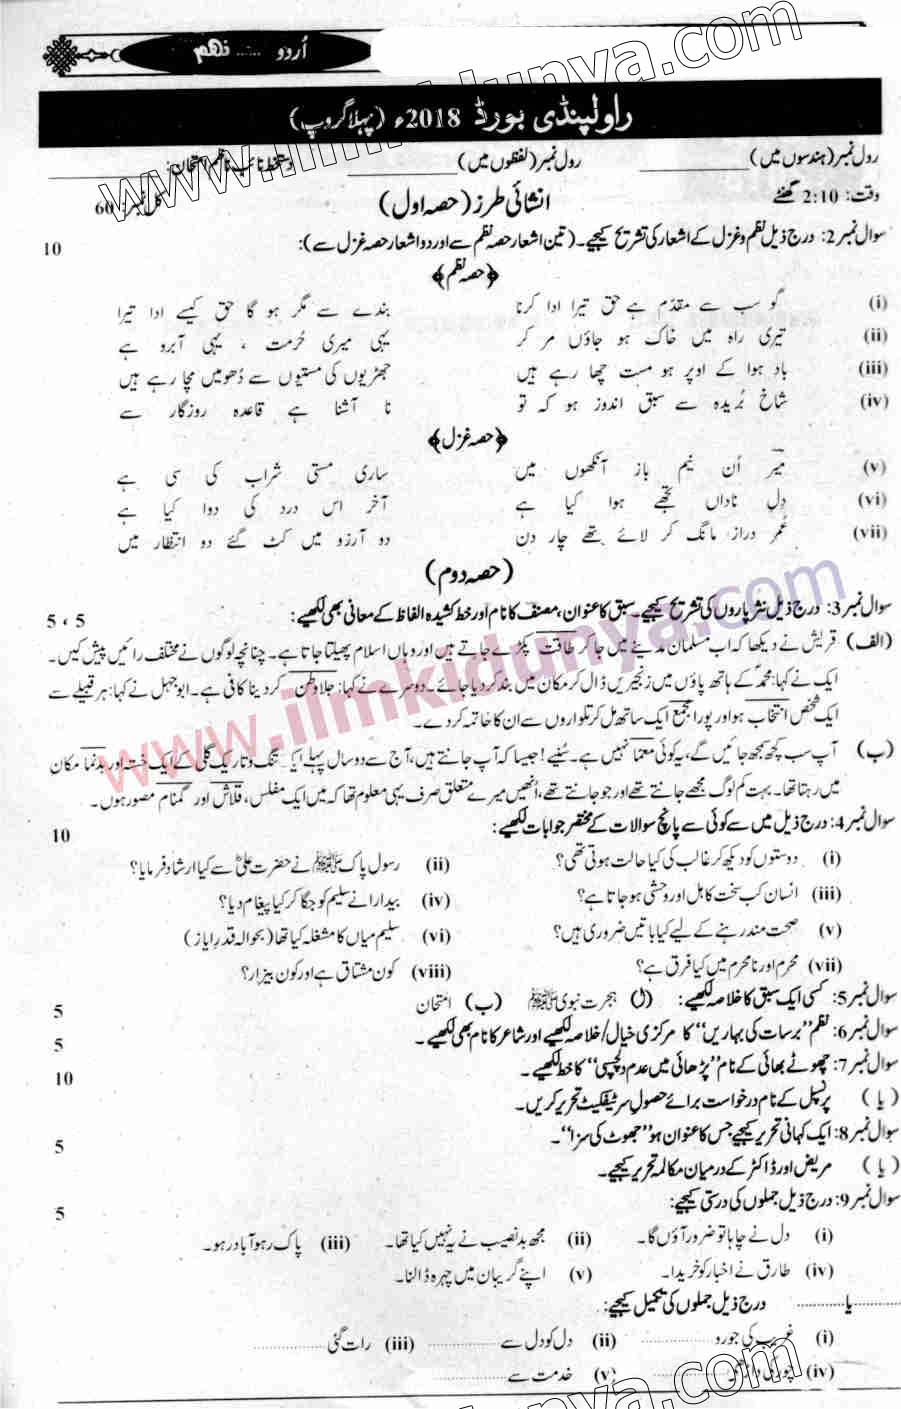 اُردو ...... نہم
راولپنڈی بورڈ 2018ء (پہلا گروپ)
رول نمبر (ہندسوں میں) ____________ رول نمبر (لفظوں میں) ____________ دستخط نائب ناظم امتحان: ____________
وقت: 2:10 گھنٹے انشائی طرز (حصہ اول) کل نمبر: 60
سوال نمبر 2: درج ذیل نظم و غزل کے اشعار کی تشریح کیجیے۔ (تین اشعار حصہ نظم سے اور دو اشعار حصہ غزل سے): 10
﴿حصہ نظم﴾
(i) گو سب سے مقدّم ہے حق تیرا ادا کرنا بندے سے مگر ہو گا حق کیسے ادا تیرا
(ii) تیری راہ میں خاک ہو جاؤں مر کر یہی میری حُرمت ، یہی آبرو ہے
(iii) بادِ ہوا کے اوپر ہو مست چھا رہے ہیں جھڑیوں کی مستیوں سے دُھومیں مچا رہے ہیں
(iv) شاخِ بُریدہ سے سبق اندوز ہو کہ تو نا آشنا ہے قاعدہ روزگار سے
﴿حصہ غزل﴾
(v) میر اُن نیم باز آنکھوں میں ساری مستی شراب کی سی ہے
(vi) دلِ ناداں تجھے ہوا کیا ہے آخر اس درد کی دوا کیا ہے
(vii) عُمرِ دراز مانگ کر لائے تھے چار دن دو آرزو میں کٹ گئے دو انتظار میں
(حصہ دوم)
سوال نمبر 3: درج ذیل نثر پاروں کی تشریح کیجیے۔ سبق کا عنوان، مصنف کا نام اور خط کشیدہ الفاظ کے معانی بھی لکھیے: 5 ، 5
(الف) قریش نے دیکھا کہ اب مسلمان مدینے میں جا کر طاقت پکڑے جاتے ہیں اور وہاں اسلام پھیلتا جاتا ہے۔ چنانچہ لوگوں نے مختلف رائیں پیش کیں۔
ایک نے کہا: محمدؐ کے ہاتھ پاؤں میں زنجیریں ڈال کر مکان میں بند کر دیا جائے۔ دوسرے نے کہا: جلاوطن کر دینا کافی ہے۔ ابوجہل نے کہا: ہر قبیلے سے
ایک شخص انتخاب ہو اور پورا مجمع ایک ساتھ مل کر تلواروں سے ان کا خاتمہ کر دے۔
(ب) آپ سب کچھ سمجھ جائیں گے، یہ کوئی معمّا نہیں ہے۔ سُنیے! جیسا کہ آپ جانتے ہیں، آج سے دو سال پہلے ایک تنگ و تاریک گلی کے ایک خستہ اور بدنما مکان
میں رہتا تھا۔ بہت کم لوگ مجھے جانتے تھے اور جو جانتے تھے، اُنھیں میرے متعلق صرف یہی معلوم تھا کہ میں ایک مفلس، قلاش اور گمنام مصور ہوں۔
سوال نمبر 4: درج ذیل میں سے کوئی سے پانچ سوالات کے مختصر جوابات لکھیے: 10
(i) دوستوں کو دیکھ کر غالب کی کیا حالت ہوتی تھی؟ (ii) رسول پاک ﷺ نے حضرت علیؓ سے کیا ارشاد فرمایا؟
(iii) انسان کب سخت کاہل اور وحشی ہو جاتا ہے؟ (iv) بیدارا نے سلیم کو جگا کر کیا پیغام دیا؟
(v) صحت مند رہنے کے لیے کیا باتیں ضروری ہیں؟ (vi) سلیم میاں کا مشغلہ کیا تھا (بحوالہ قدرِ ایاز)
(vii) محرم اور نامحرم میں کیا فرق ہے؟ (viii) کون مشتاق ہے اور کون بیزار؟
سوال نمبر 5: کسی ایک سبق کا خلاصہ لکھیے: (ل) ہجرت نبوی ﷺ (ب) امتحان 5
سوال نمبر 6: نظم "برسات کی بہاریں" کا مرکزی خیال / خلاصہ لکھیے اور شاعر کا نام بھی لکھیے۔ 5
سوال نمبر 7: چھوٹے بھائی کے نام "پڑھائی میں عدم دلچسپی" کا خط لکھیے۔ 10
(یا) پرنسپل کے نام درخواست برائے حصول سرٹیفکیٹ تحریر کریں۔
سوال نمبر 8: ایک کہانی تحریر کیجیے جس کا عنوان ہو "جھوٹ کی سزا"۔ 5
(یا) مریض اور ڈاکٹر کے درمیان مکالمہ تحریر کیجیے۔
سوال نمبر 9: درج ذیل جملوں کی درستی کیجیے: 5
(i) دل نے چاہا تو ضرور آؤں گا۔ (ii) مجھ بدنصیب نے یہ نہیں کیا تھا۔ (iii) پاک رہو آباد رہو۔
(iv) طارق نے اخبار کو خریدا۔ (v) اپنے گریبان میں چہرہ ڈالنا۔
.........یا......... درج ذیل جملوں کی تکمیل کیجیے:
(i) غریب کی جورو ............ (ii) دل کو دل سے ............ (iii) رات گئی ............
(iv) چور کی داڑھی ............ (v) خدمت سے ............
www.ilmkidunya.com
www.ilmkidunya.com
www.ilmkidunya.com